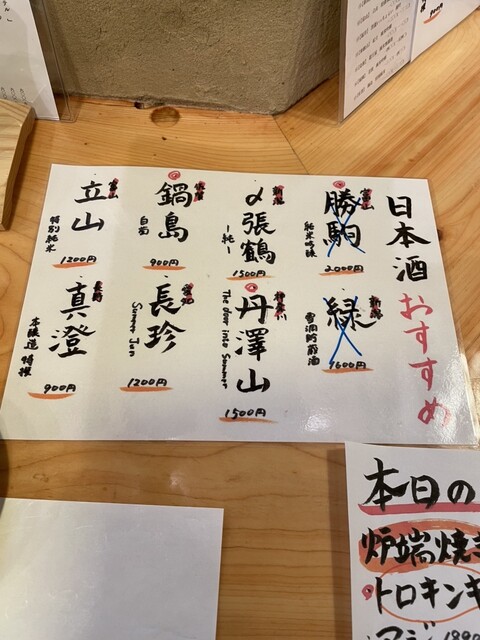 日本酒 おすすめ
富山
勝駒
純米吟醸
2000円
新潟
〆張鶴
一純一
1500円
佐賀
鍋島
白菊
900円
富山
立山
特別純米
1200円
新潟
緑
雪洞貯蔵酒
1600円
神奈川
丹澤山
The door into Summer
1500円
愛知
長珍
Summer Jun
1200円
長野
真澄
本醸造 特撰
900円
本日の
炉端焼き
・トロキンキ
アジ